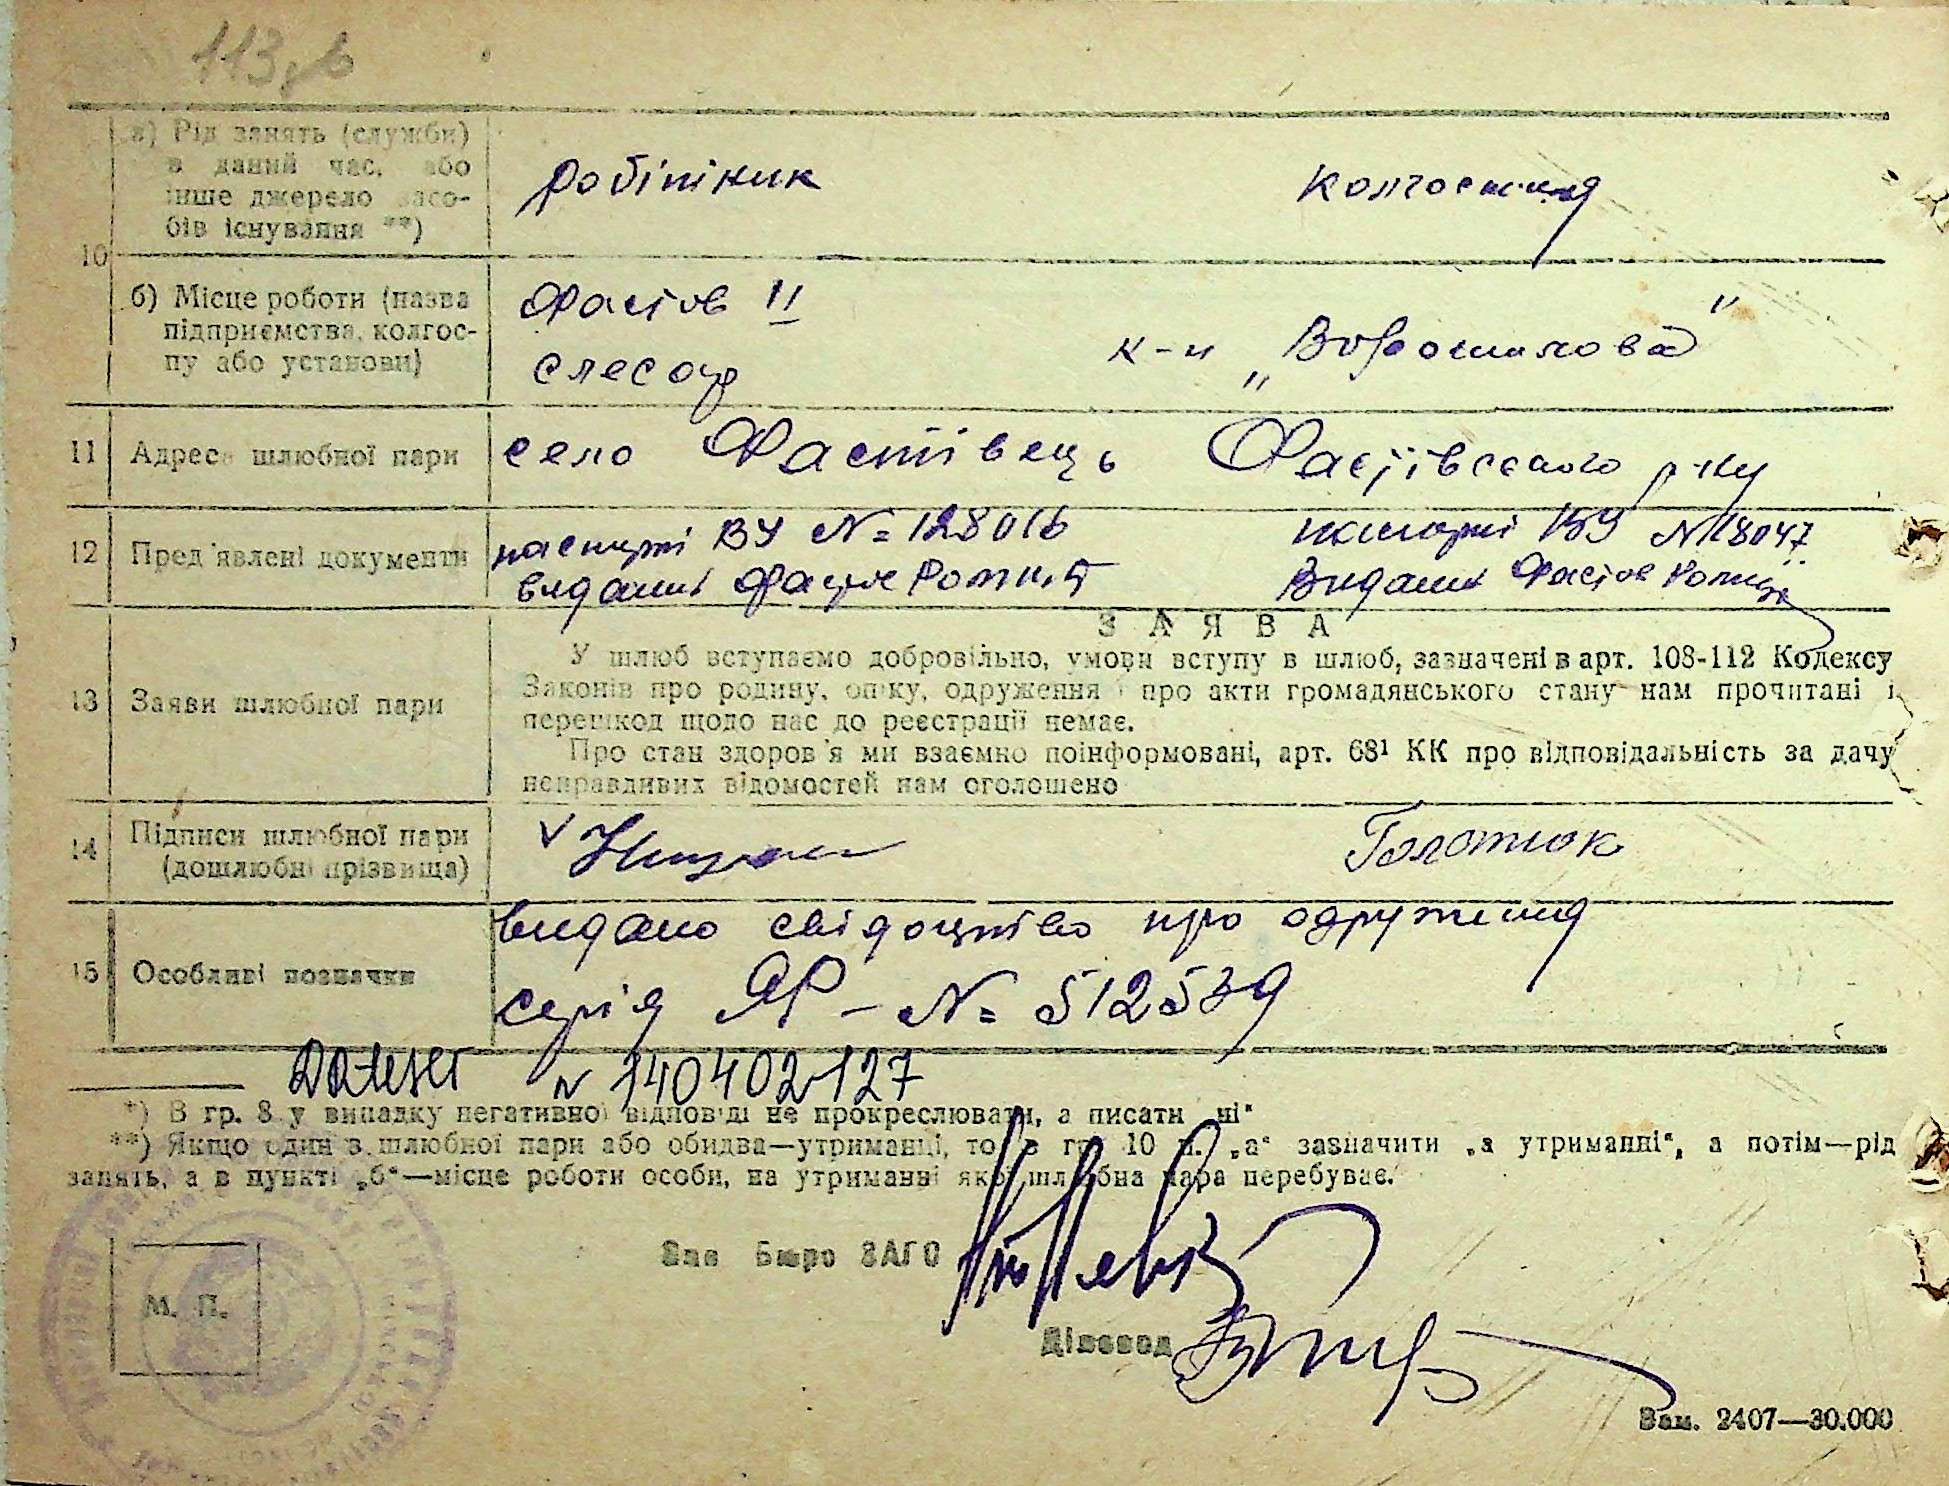 113
а) Рід занять (служби)
в даний час, або
інше джерело засо-
бів існування **)
робітник колгоспниця
10
б) Місце роботи (назва
підприємства, колгос-
пу або установи)
Фастов II
слесар
к-п „Ворошилова"
11 Адреса шлюбної пари село Фастівець Фастівського р-ну
12 Пред'явлені документи
паспорт ВУ № 128016 паспорт № 18047
виданий Фастов виданий Фастов
13 Заяви шлюбної пари
ЗАЯВА
У шлюб вступаємо добровільно, умови вступу в шлюб, зазначені в арт. 108-112 Кодексу
Законів про родину, опіку, одруження і про акти громадянського стану нам прочитані і
перешкод щодо нас до реєстрації немає.
Про стан здоров'я ми взаємно поінформовані, арт. 68¹ КК про відповідальність за дачу
неправдивих відомостей нам оголошено
14 Підписи шлюбної пари
(дошлюбні прізвища)
15 Особливі позначки
видано свідоцтво про одруження
серія ЯР – № 512539
N 140402127
*) В гр. 8 у випадку негативної відповіді не прокреслювати, а писати „ні"
**) Якщо один з шлюбної пари або обидва—утриманці, то в гр. 10 п. „а" зазначити „а утриманні", а потім—рід
занять, а в пункті „б"—місце роботи особи, на утриманні якої шлюбна пара перебуває.
Зав Бюро ЗАГС
М. П.
Діловод
Зам. 2407—30.000